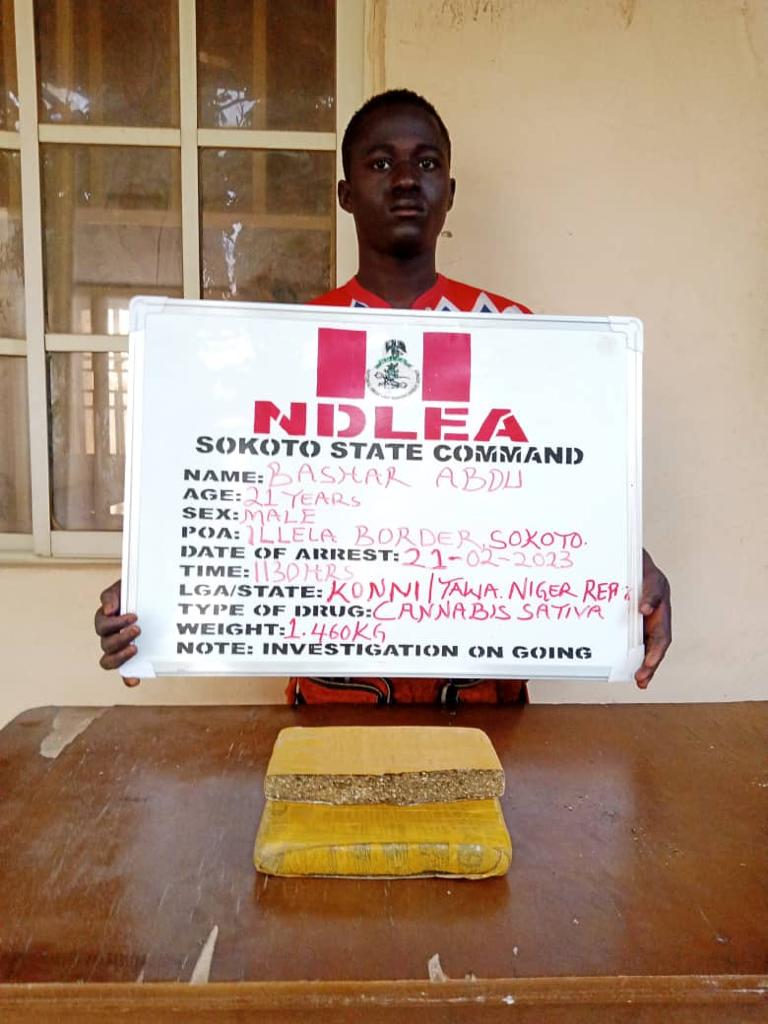 NDLEA
SOKOTO STATE COMMAND
NAME: BASHAR ABDU
AGE: 21 YEARS
SEX: MALE
POA: ILLELA BORDER, SOKOTO.
DATE OF ARREST: 21-02-2023
TIME: 1130HRS
LGA/STATE: KONNI/TAWA. NIGER REP
TYPE OF DRUG: CANNABIS SATIVA
WEIGHT: 1.460KG
NOTE: INVESTIGATION ON GOING